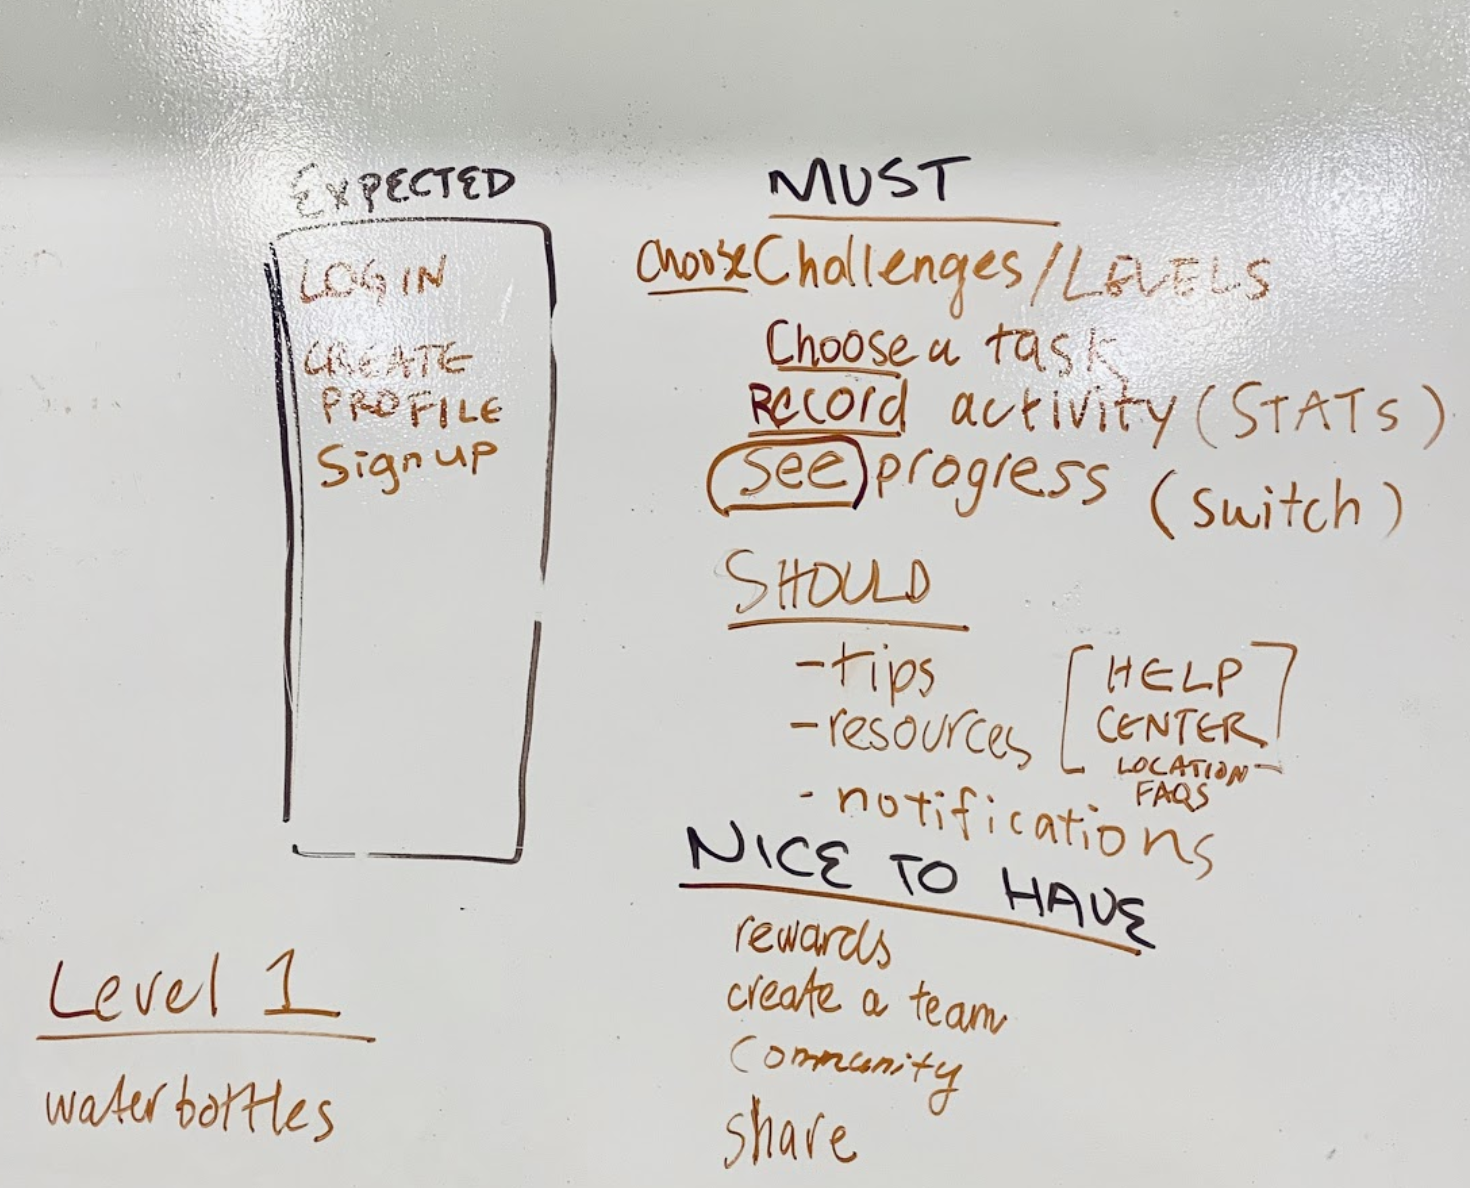 EXPECTED
LOGIN
CREATE
PROFILE
Signup
MUST
choose Challenges / LEVELS
Choose a task
Record activity (STATS)
See progress (switch)
SHOULD
- tips
- resources
[HELP
CENTER]
LOCATION
FAQS
- notifications
NICE TO HAVE
rewards
create a team
Community
share
Level 1
waterbottles